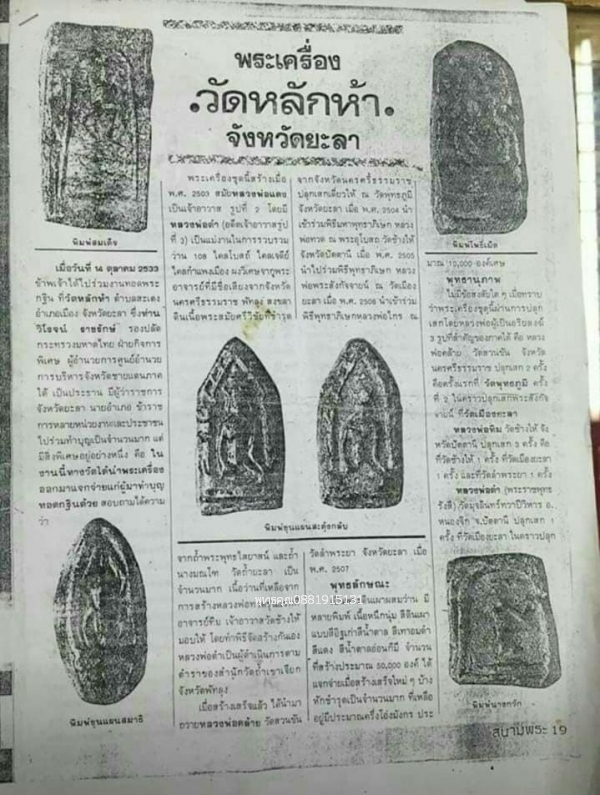 พระเครื่อง
วัดหลักห้า
จังหวัดยะลา
พิมพ์สมเด็จ
เมื่อวันที่ 14 ตุลาคม 2533
ข้าพเจ้าได้ไปร่วมงานทอดพระ
กฐิน ที่วัดหลักห้า ตำบลสะเตง
อำเภอเมือง จังหวัดยะลา ซึ่งท่าน
วิโรจน์ ราชรักษ์ รองปลัด
กระทรวงมหาดไทย ฝ่ายกิจการ
พิเศษ ผู้อำนวยการศูนย์อำนวย
การบริหารจังหวัดชายแดนภาค
ใต้ เป็นประธาน มีผู้ว่าราชการ
จังหวัดยะลา นายอำเภอ ข้าราช
การหลายหน่วยงานและประชาชน
ไปร่วมทำบุญเป็นจำนวนมาก แต่
มีสิ่งพิเศษอยู่อย่างหนึ่ง คือ ใน
งานนี้ทางวัดได้นำพระเครื่อง
ออกมาแจกจ่ายแก่ผู้มาทำบุญ
ทอดกฐินด้วย สอบถามได้ความ
ว่า
พิมพ์ขุนแผนสมาธิ
พระเครื่องชุดนี้สร้างเมื่อ
พ.ศ. 2503 สมัยหลวงพ่อแดง
เป็นเจ้าอาวาส รูปที่ 2 โดยมี
หลวงพ่อดำ (อดีตเจ้าอาวาสรูป
ที่ 3) เป็นแม่งานในการรวบรวม
ว่าน 108 ไคลโบสถ์ ไคลเจดีย์
ไคลกำแพงเมือง ผงวิเศษจากพระ
อาจารย์ที่มีชื่อเสียงจากจังหวัด
นครศรีธรรมราช พัทลุง สงขลา
ดินเนื้อพระสมัยศรีวิชัยที่ชำรุด
พิมพ์ขุนแผนสะดุ้งกลับ
จากถ้ำพระพุทธไสยาสน์ และถ้ำ
นางมณโฑ วัดถ้ำยะลา เป็น
จำนวนมาก เนื้อว่านที่เหลือจาก
การสร้างหลวงพ่อทวด
อาจารย์ทิม เจ้าอาวาสวัดช้างให้
มอบให้ โดยทำพิธีจัดสร้างกันเอง
หลวงพ่อดำเป็นผู้ดำเนินการตาม
ตำราของสำนักวัดถ้ำเขาเจียก
จังหวัดพัทลุง
เมื่อสร้างเสร็จแล้ว ได้นำมา
ถวายหลวงพ่อคล้าย วัดสวนขัน
จากจังหวัดนครศรีธรรมราช
ปลุกเสกเดี่ยวให้ ณ วัดพุทธภูมิ
จังหวัดยะลา เมื่อ พ.ศ. 2504 นำ
เข้าร่วมพิธีมหาพุทธาภิเษก หลวง
พ่อทวด ณ พระอุโบสถวัดช้างให้
จังหวัดปัตตานี เมื่อ พ.ศ. 2505
นำไปร่วมพิธีพุทธาภิเษก หลวง
พ่อพระสังกัจจายน์ ณ วัดเมือง
ยะลา เมื่อ พ.ศ. 2506 นำเข้าร่วม
พิธีพุทธาภิเษกหลวงพ่อไกร ณ
วัดลำพระยา จังหวัดยะลา เมื่อ
พ.ศ. 2507
พุทธลักษณะ
เป็นเนื้อดินเผาผสมว่าน มี
หลายพิมพ์ เนื้อหนึกนุ่ม สีดินเผา
แบบสีอิฐเก่าสีน้ำตาล สีเทาอมดำ
สีแดง สีน้ำตาลอ่อนก็มี จำนวน
ที่สร้างประมาณ 50,000 องค์ ได้
แจกจ่ายเมื่อสร้างเสร็จใหม่ ๆ บ้าง
หักชำรุดเป็นจำนวนมาก ที่เหลือ
อยู่มีประมาณครึ่งโอ่งมังกร ประ
พิมพ์โพธิ์เม็ด
มาณ 10,000 องค์เศษ
พุทธานุภาพ
ไม่มีข้อสงสัยใด ๆ เมื่อทราบ
ว่าพระเครื่องชุดนี้ผ่านการปลุก
เสกโดยหลวงพ่อผู้เป็นอริยสงฆ์
3 รูปที่สำคัญของภาคใต้ คือ หลวง
พ่อคล้าย วัดสวนขัน จังหวัด
นครศรีธรรมราช ปลุกเสก 2 ครั้ง
คือครั้งแรกที่ วัดพุทธภูมิ ครั้ง
ที่ 2 ในคราวปลุกเสกพระสังกัจ
จายน์ ที่วัดเมืองยะลา
หลวงพ่อทิม วัดช้างให้ จัง
หวัดปัตตานี ปลุกเสก 3 ครั้ง คือ
ที่วัดช้างให้ 1 ครั้ง ที่วัดเมืองยะลา
1 ครั้ง และที่วัดลำพระยา 1 ครั้ง
หลวงพ่อดำ (พระราชพุทธ
รังสี) วัดมุจลินทวาปีวิหาร อ.
หนองจิก จ.ปัตตานี ปลุกเสก 1
ครั้ง ที่วัดเมืองยะลา ในคราวปลุก
พิมพ์นาคปรก
พุทธคุณ0881915131
สนามพระ 19